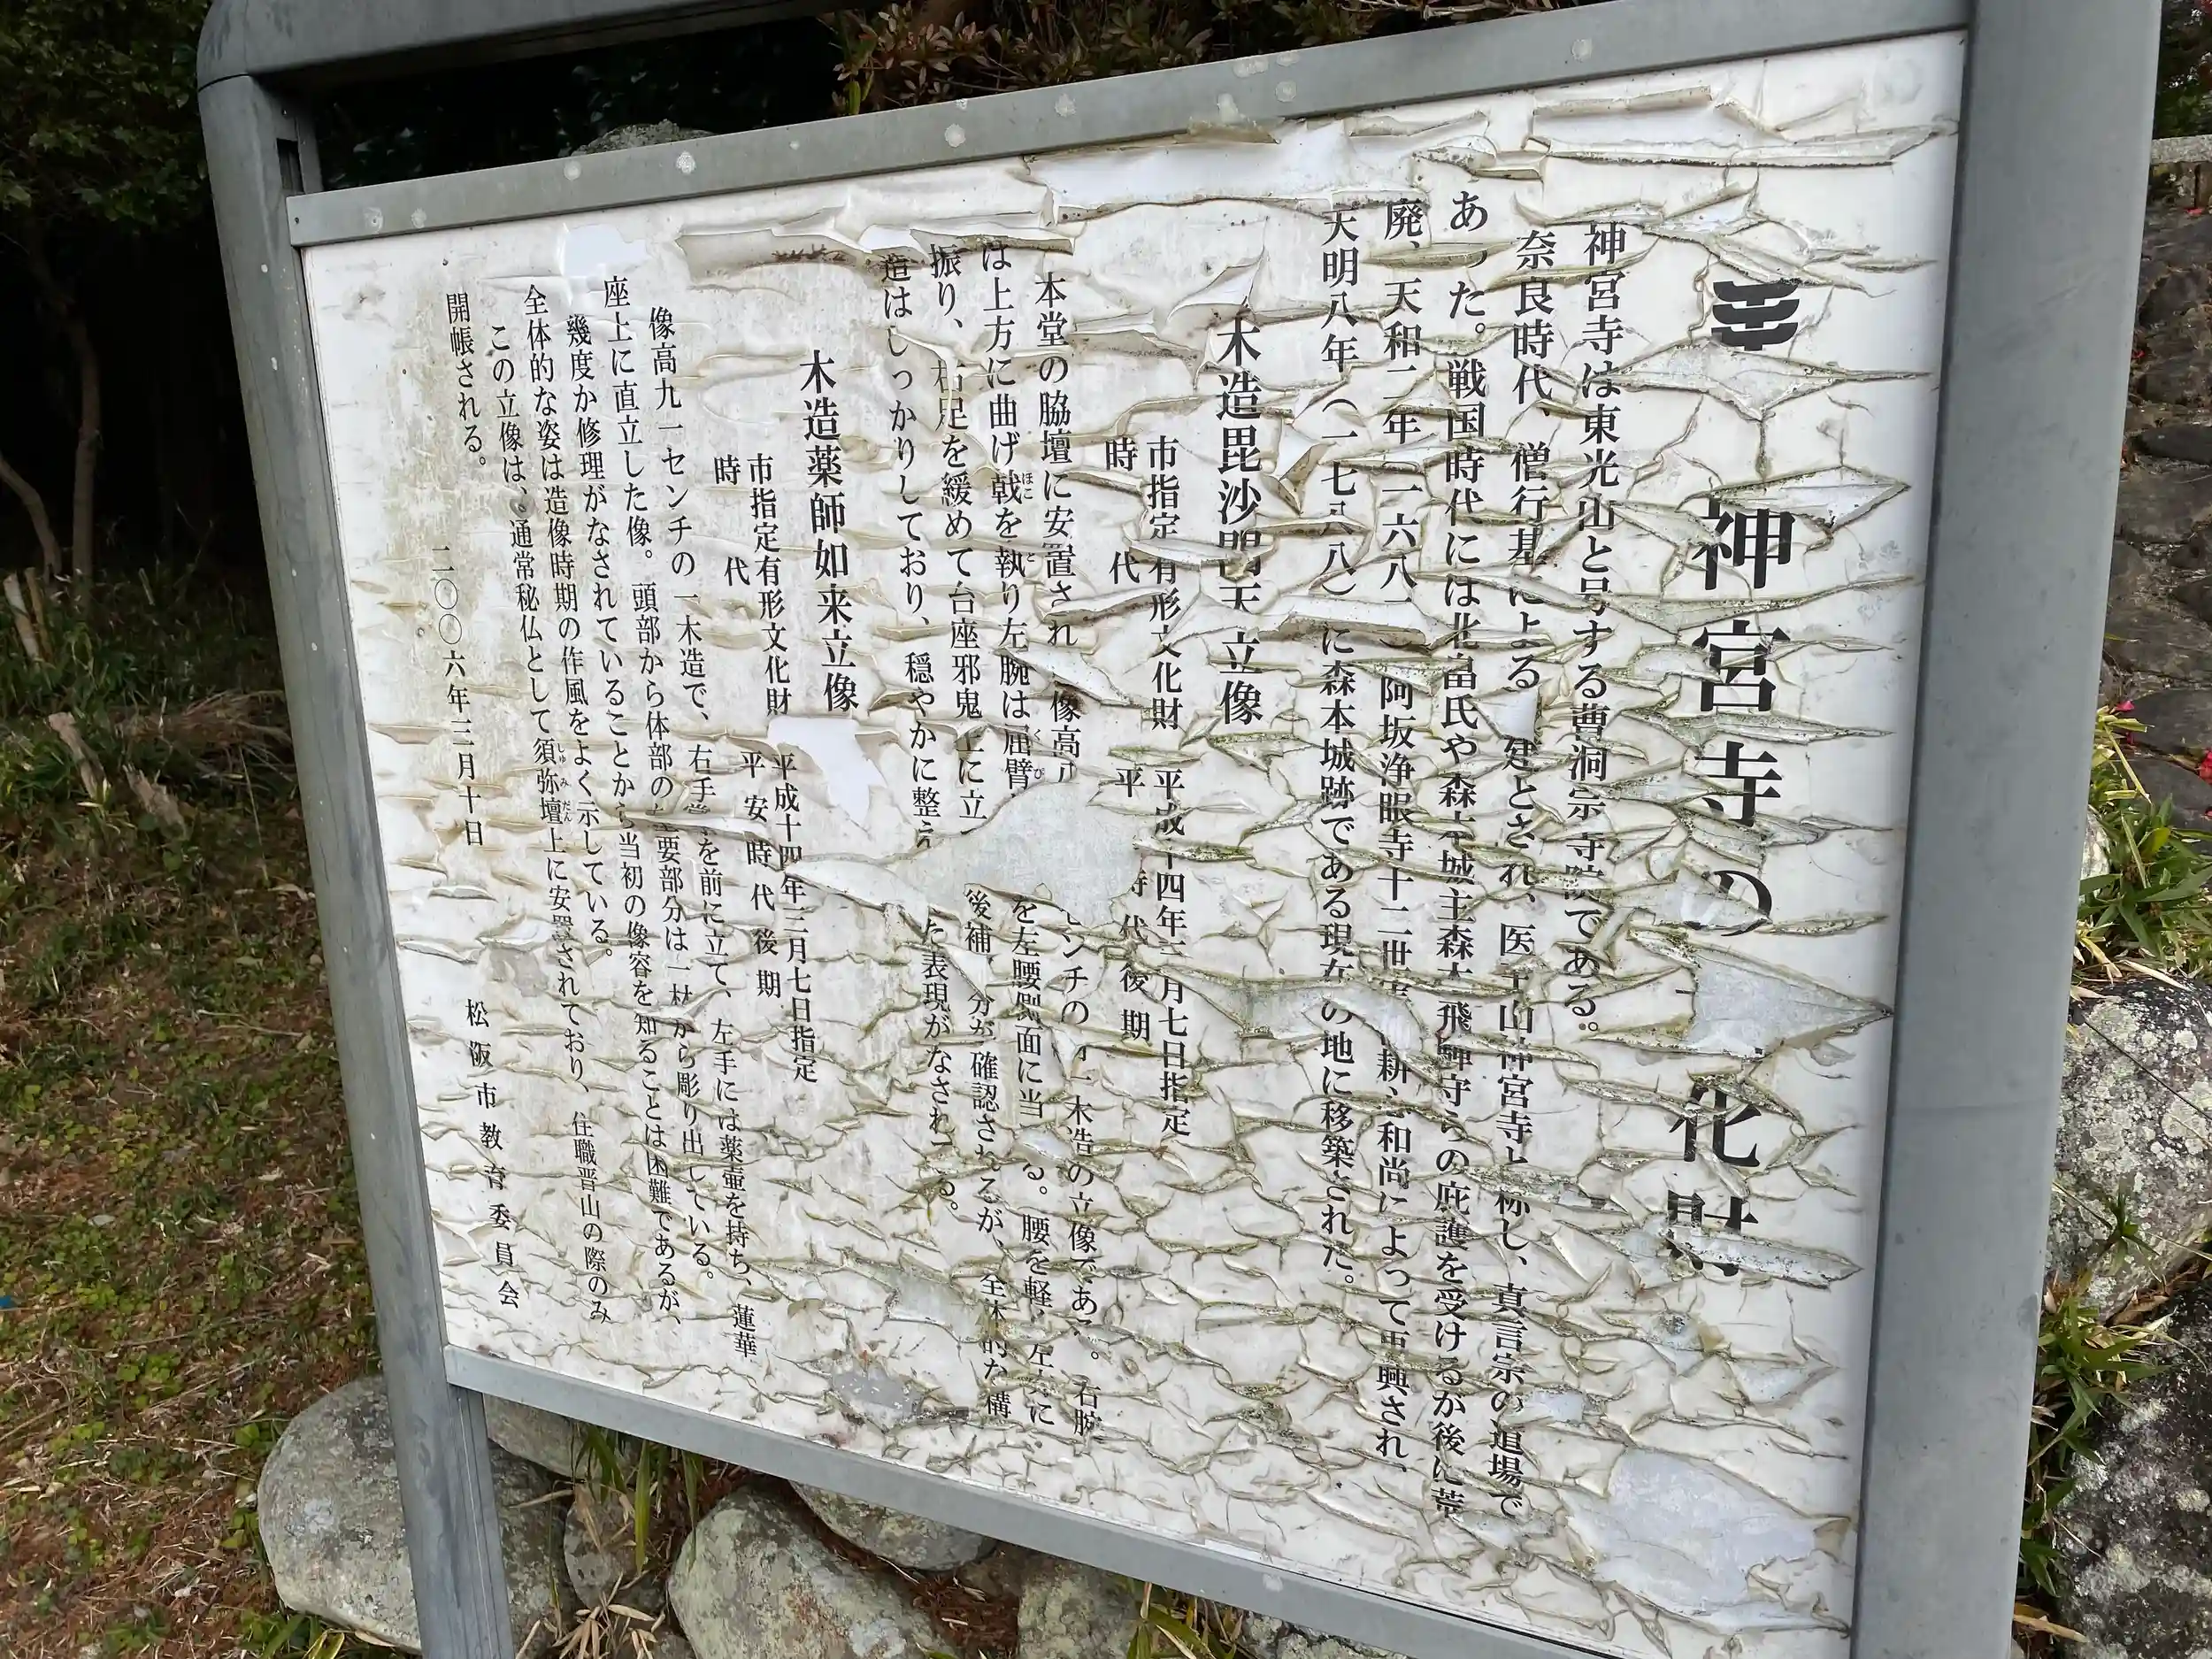 神宮寺の 化財
神宮寺は東光山と号する曹洞宗寺院である。
奈良時代、僧行基による 建とされ、医王山神宮寺と称し、真言宗の道場で
あった。戦国時代には北畠氏や森本城主森本飛騨守らの庇護を受けるが後に荒
廃、天和二年(一六八 )阿坂浄眼寺十二世 耕 和尚によって再興され、
天明八年(一七八八)に森本城跡である現在の地に移築された。
木造毘沙門天立像
市指定有形文化財 平成十四年三月七日指定
時代 平 時代後期
本堂の脇壇に安置され 像高 ンチの 一木造の立像である。右腕
は上方に曲げ戟を執り左腕は屈臂 を左腰側面に当 る。腰を軽 左方に
振り、右足を緩めて台座邪鬼上に立 後補 分が確認されるが、全体的な構
造はしっかりしており、穏やかに整え た表現がなされ る。
木造薬師如来立像
市指定有形文化財 平成十四年三月七日指定
時代 平安時代後期
像高九一センチの一木造で、右手掌を前に立て、左手には薬壷を持ち、蓮華
座上に直立した像。頭部から体部の主要部分は一材から彫り出している。
幾度か修理がなされていることから当初の像容を知ることは困難であるが、
全体的な姿は造像時期の作風をよく示している。
この立像は、通常秘仏として須弥壇上に安置されており、住職晋山の際のみ
開帳される。
二〇〇六年三月十日
松阪市教育委員会